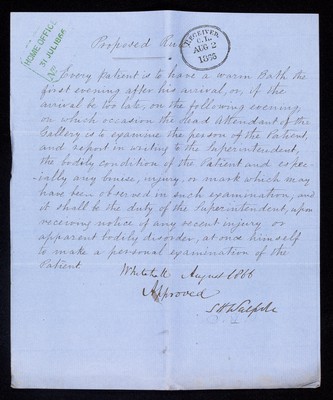 HOME OFFICE
31 JUL 1866
No
Proposed Rule
RECEIVER
C.L.
AUG 2
Every Patient is to have a warm Bath the
first evening after his arrival, or, if the
arrival be too late, on the following evening,
on which occasion the Head Attendant of the
Gallery is to examine the person of the Patient,
and report in writing to the Superintendent,
the bodily condition of the Patient and espec-
-ially any bruise, injury, or mark which may
have been observed in such examination, and
it shall be the duty of the Superintendent, upon
receiving notice of any recent injury or
apparent bodily disorder, at once himself
to make a personal examination of the
Patient
Whitehall August 1866
Approved
S H Walpole